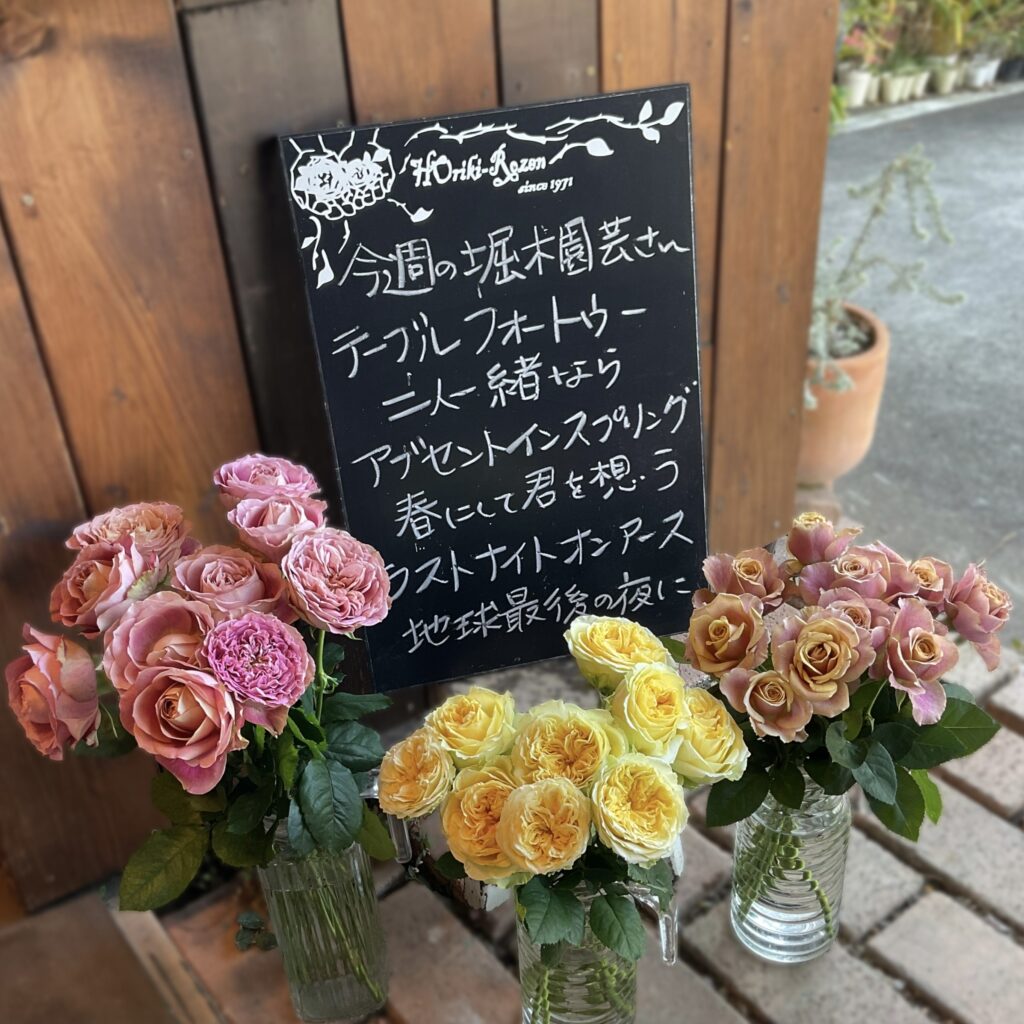 HOriki-Rozen
since 1971
今週の堀木園芸さん
テーブルフォートゥー
二人一緒なら
アブセントインスプリング
春にして君を想う
ラストナイトオンアース
地球最後の夜に